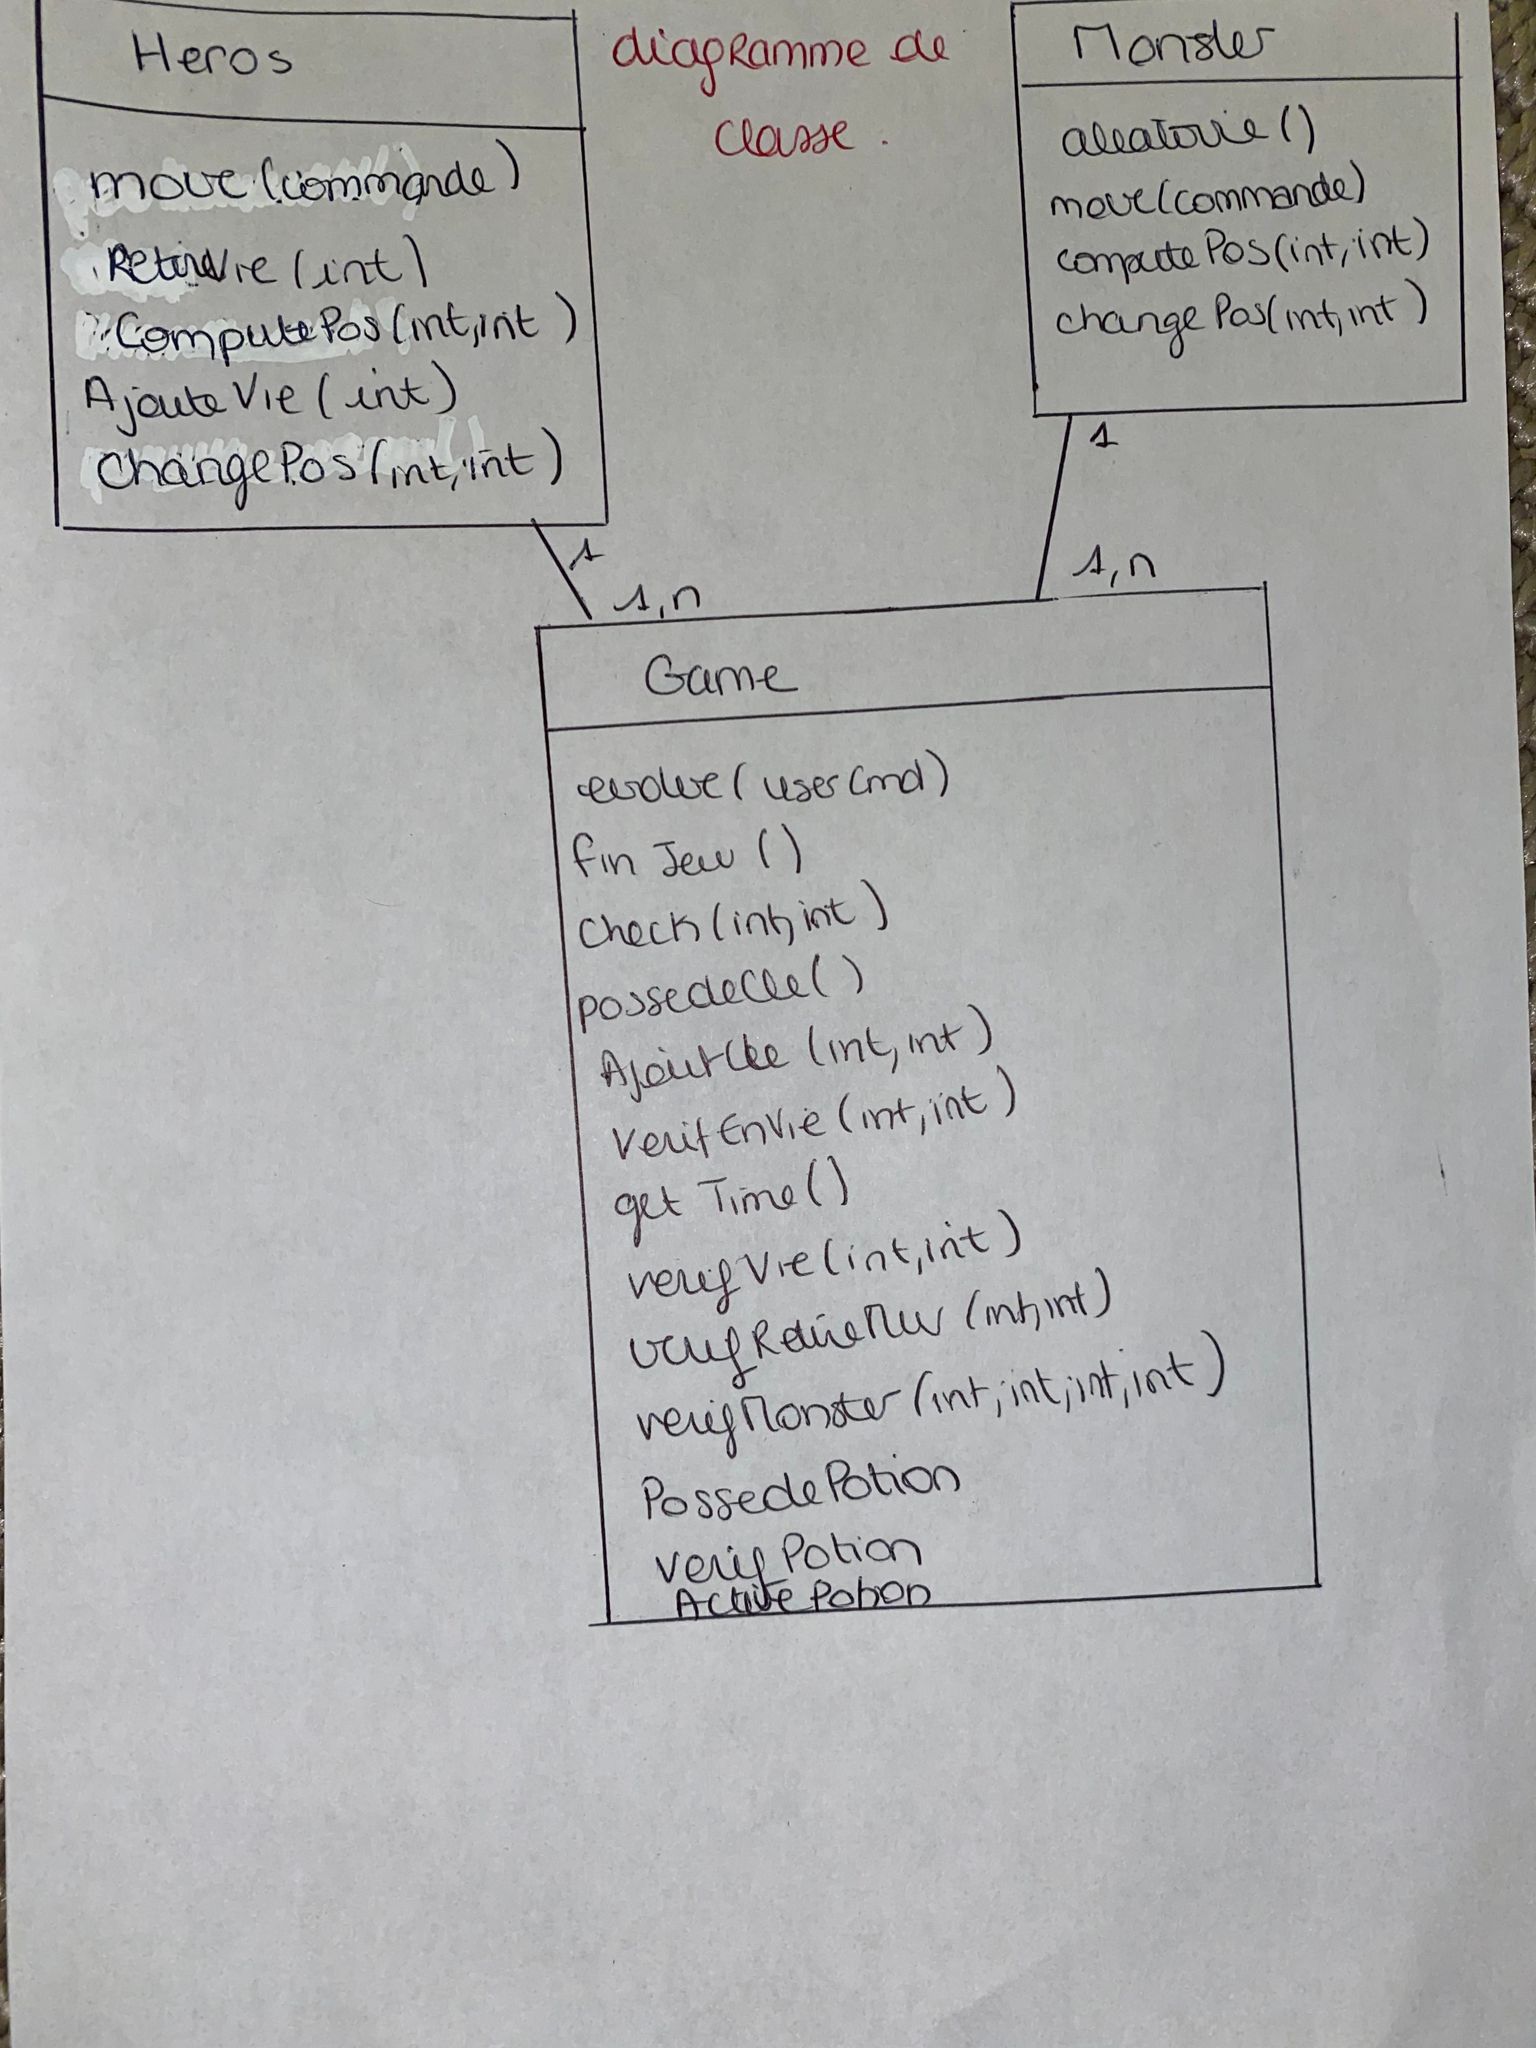 Heros
move (commande)
RetireVie (int)
ComputePos (int, int)
Ajoute Vie (int)
ChangePos (int, int)
diagramme de
classe.
Monster
aleatoire ()
move (commande)
compute Pos (int, int)
change Pos (int, int)
1
1,n
1
1,n
Game
evolve ( userCmd)
fin Jeu ()
Check (int, int)
possedeCle ()
AjoutCle (int, int)
VerifEnVie (int, int)
get Time ()
verif Vie (int, int)
verifRetireMur (int, int)
verifMonster (int, int, int, int)
PossedePotion
verif Potion
Active Potion